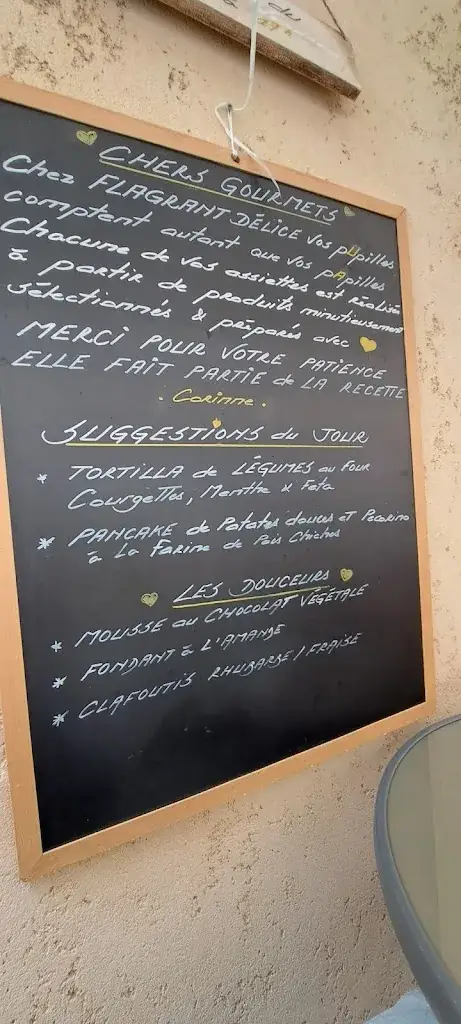 du
CHERS GOURMETS
Chez FLAGRANT DÉLICE vos pUpilles
comptent autant que vos pApilles
Chacune de vos assiettes est réalisée
à partir de produits minutieusement
sélectionnés & préparés avec
MERCI POUR VOTRE PATIENCE
ELLE FAIT PARTIE de LA RECETTE
. Corinne .
SUGGESTIONS du JOUR
* TORTILLA de LÉGUMES au FOUR
Courgettes, Menthe & Feta
* PANCAKE de Patates douces ET Pecorino
à La Farine de Pois Chiches
LES DOUCEURS
* MOUSSE au CHOCOLAT VÉGÉTALE
* FONDANT à L'AMANDE
* CLAFOUTIS RHUBARBE / FRAISE